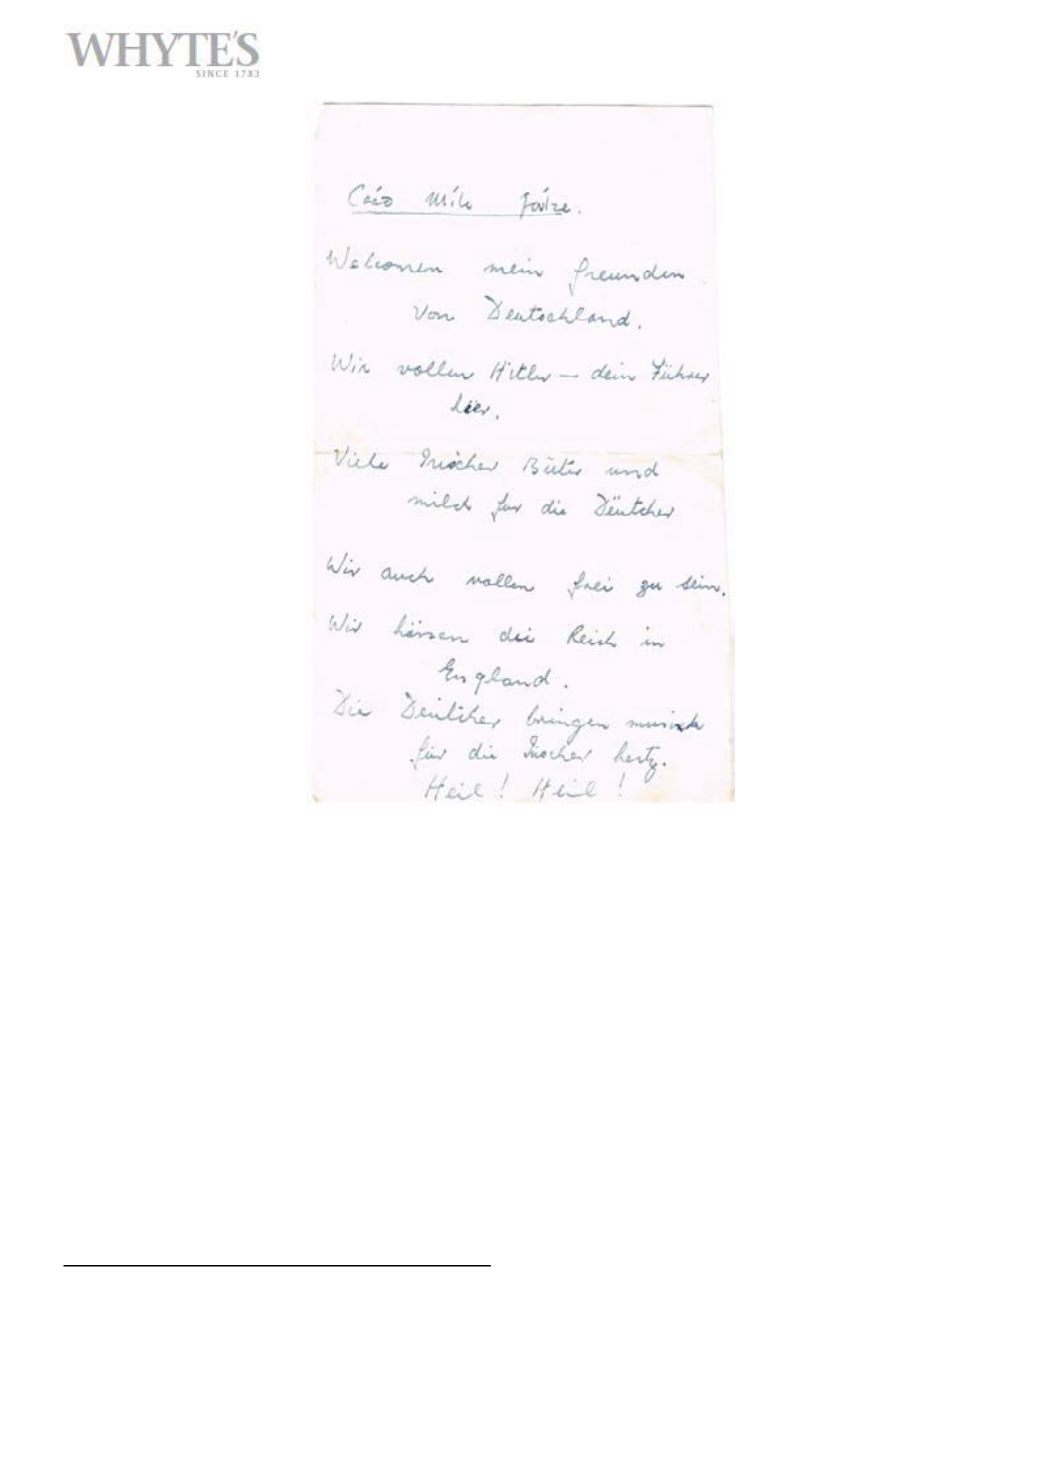 WHYTE'S
SINCE 1783
Céad Míle Fáilte.
Welcomen mein freunden
von Deutschland.
Wir vollen Hitler — dein Führer
hier.
Viele Irischer Büter und
milch fur die Deütcher
Wir auch vollen frei zu sein.
Wir hässen die Reich in
England.
Die Deütcher bringen musick
für die Irischer hertz.
Heil! Heil!